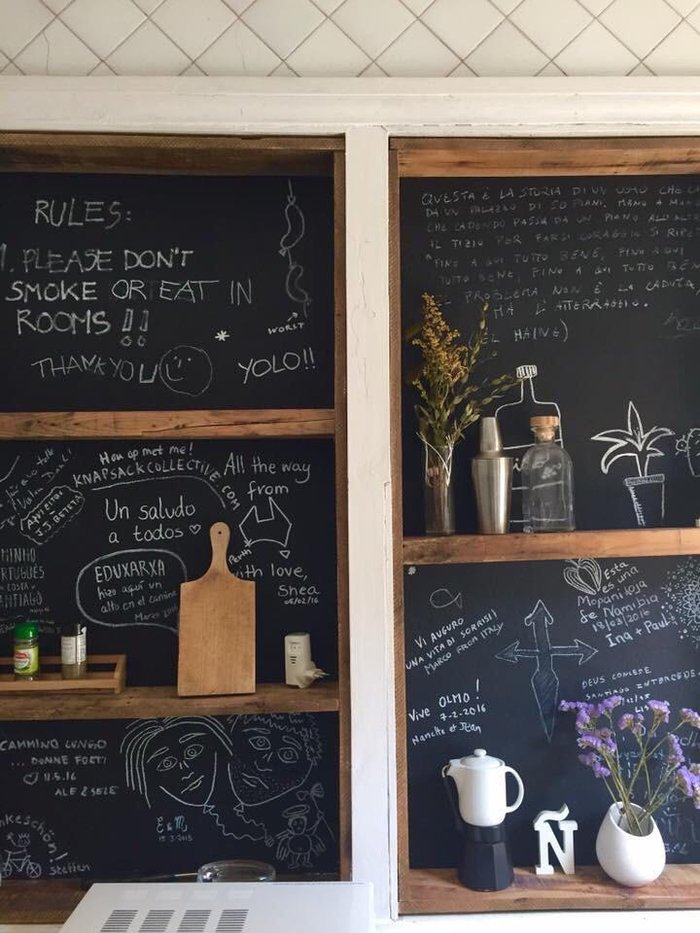 RULES:
1. PLEASE DON'T
SMOKE OR EAT IN
ROOMS!!
THANK YOU
WORST
YOLO!!
Hou op met me!
KNAPSACKCOLLECTIVE.COM
Un saludo
a todos
EDUXARXA
hizo aquí un
alto en el camino
All the way
from
Perth
with love,
Shea
05/02/16
J.J. BETETA
MINHO
PORTUGUÊS
COSTA
SANTIAGO
CAMMINO LUNGO
... DONNE FORTI
11.5.16
ALE 2 SELE
E & M,
15.3.2015
Dankeschön!
Steffen
QUESTA È LA STORIA DI UN UOMO CHE
DA UN PALAZZO DI 50 PIANI. MANO A
CHE CADENDO PASSA DA UN PIANO ALL'
IL TIZIO PER FARSI CORAGGIO SI RIPETE
"FINO A QUI TUTTO BENE, FINO A QUI
TUTTO BENE, FINO A QUI TUTTO BENE.
IL PROBLEMA NON È LA CADUTA,
MA L'ATTERRAGGIO.
HAINE)
Esta
es una
Mopani loja
de Namibia
13/03/2016
Ina + Paul
VI AUGURO
UNA VITA DI SORRISI!
MARCO FROM ITALY
Vive OLMO!
7-2-2016
Nanette et Jean
DEUS CONCEDE
SANTIAGO
Ñ